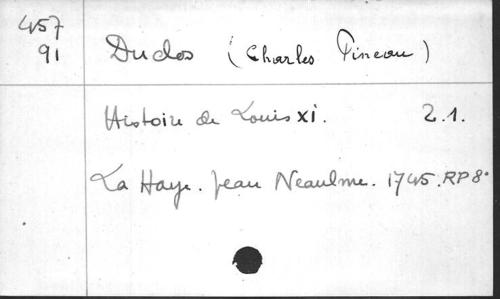 457
91
Duclos (Charles Pineau)
Histoire de Louis XI. 2.1.
La Haye. Jean Neaulme. 1745. RP 8°